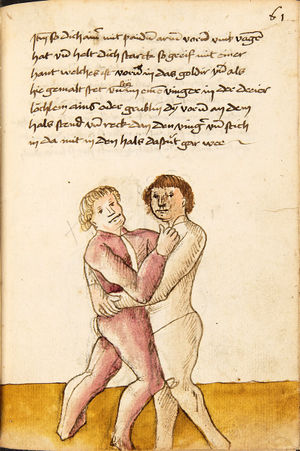 61
Itm so dich ainr mit paiden armen vorn vmb vangen
hat vnd helt dich starck so greif mit einer
hant welches ist vorn in das goldir vnd als
hie gemalt stet vnd im eine vinger in der dreier
lochlein ains oder greublin die vorn an dem
hals stend vnd reck dan den vinger vnd stich
in da mit in den hals das tut gar wee